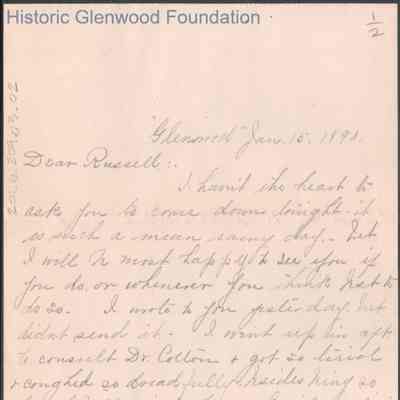 Historic Glenwood Foundation
1/2
"Glenwood" Jan. 15. 1890.
Dear Russell:.
I hav'nt the heart to
ask you to come down tonight - it
is such a mean rainy day. - but
I will be most happy to see you if
you do, or whenever you think best to
do so. I wrote to you yesterday but
didnt send it. I went up in aft
to consult Dr. Cotton & got so tired
& coughed so dreadfully besides being so